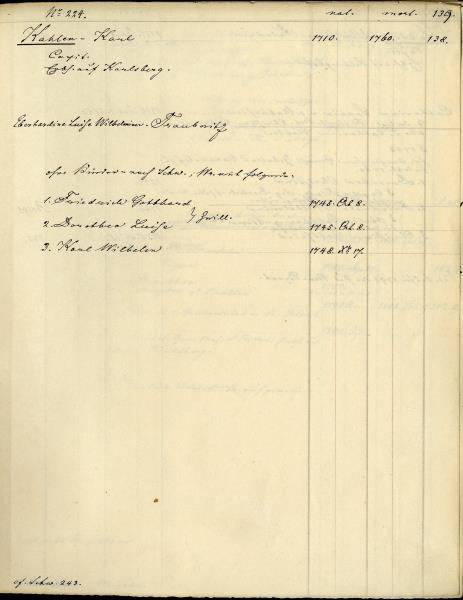 No 224. nat. mort. 139.
Kahlen - Karl 1710. 1760. 138.
Capit.
Erbh. auf Karlsberg.
Eberhardine Luise Wilhelmine - Traubnitz
ohne Kinder - nach Schw.; folgende.
1. Friedrich Gotthard 1745. Oct. 8.
} Zwill.
2. Dorothea Luise 1745. Oct. 8.
3. Karl Wilhelm 1748. Xbr 17.
cf. Schw. 243.